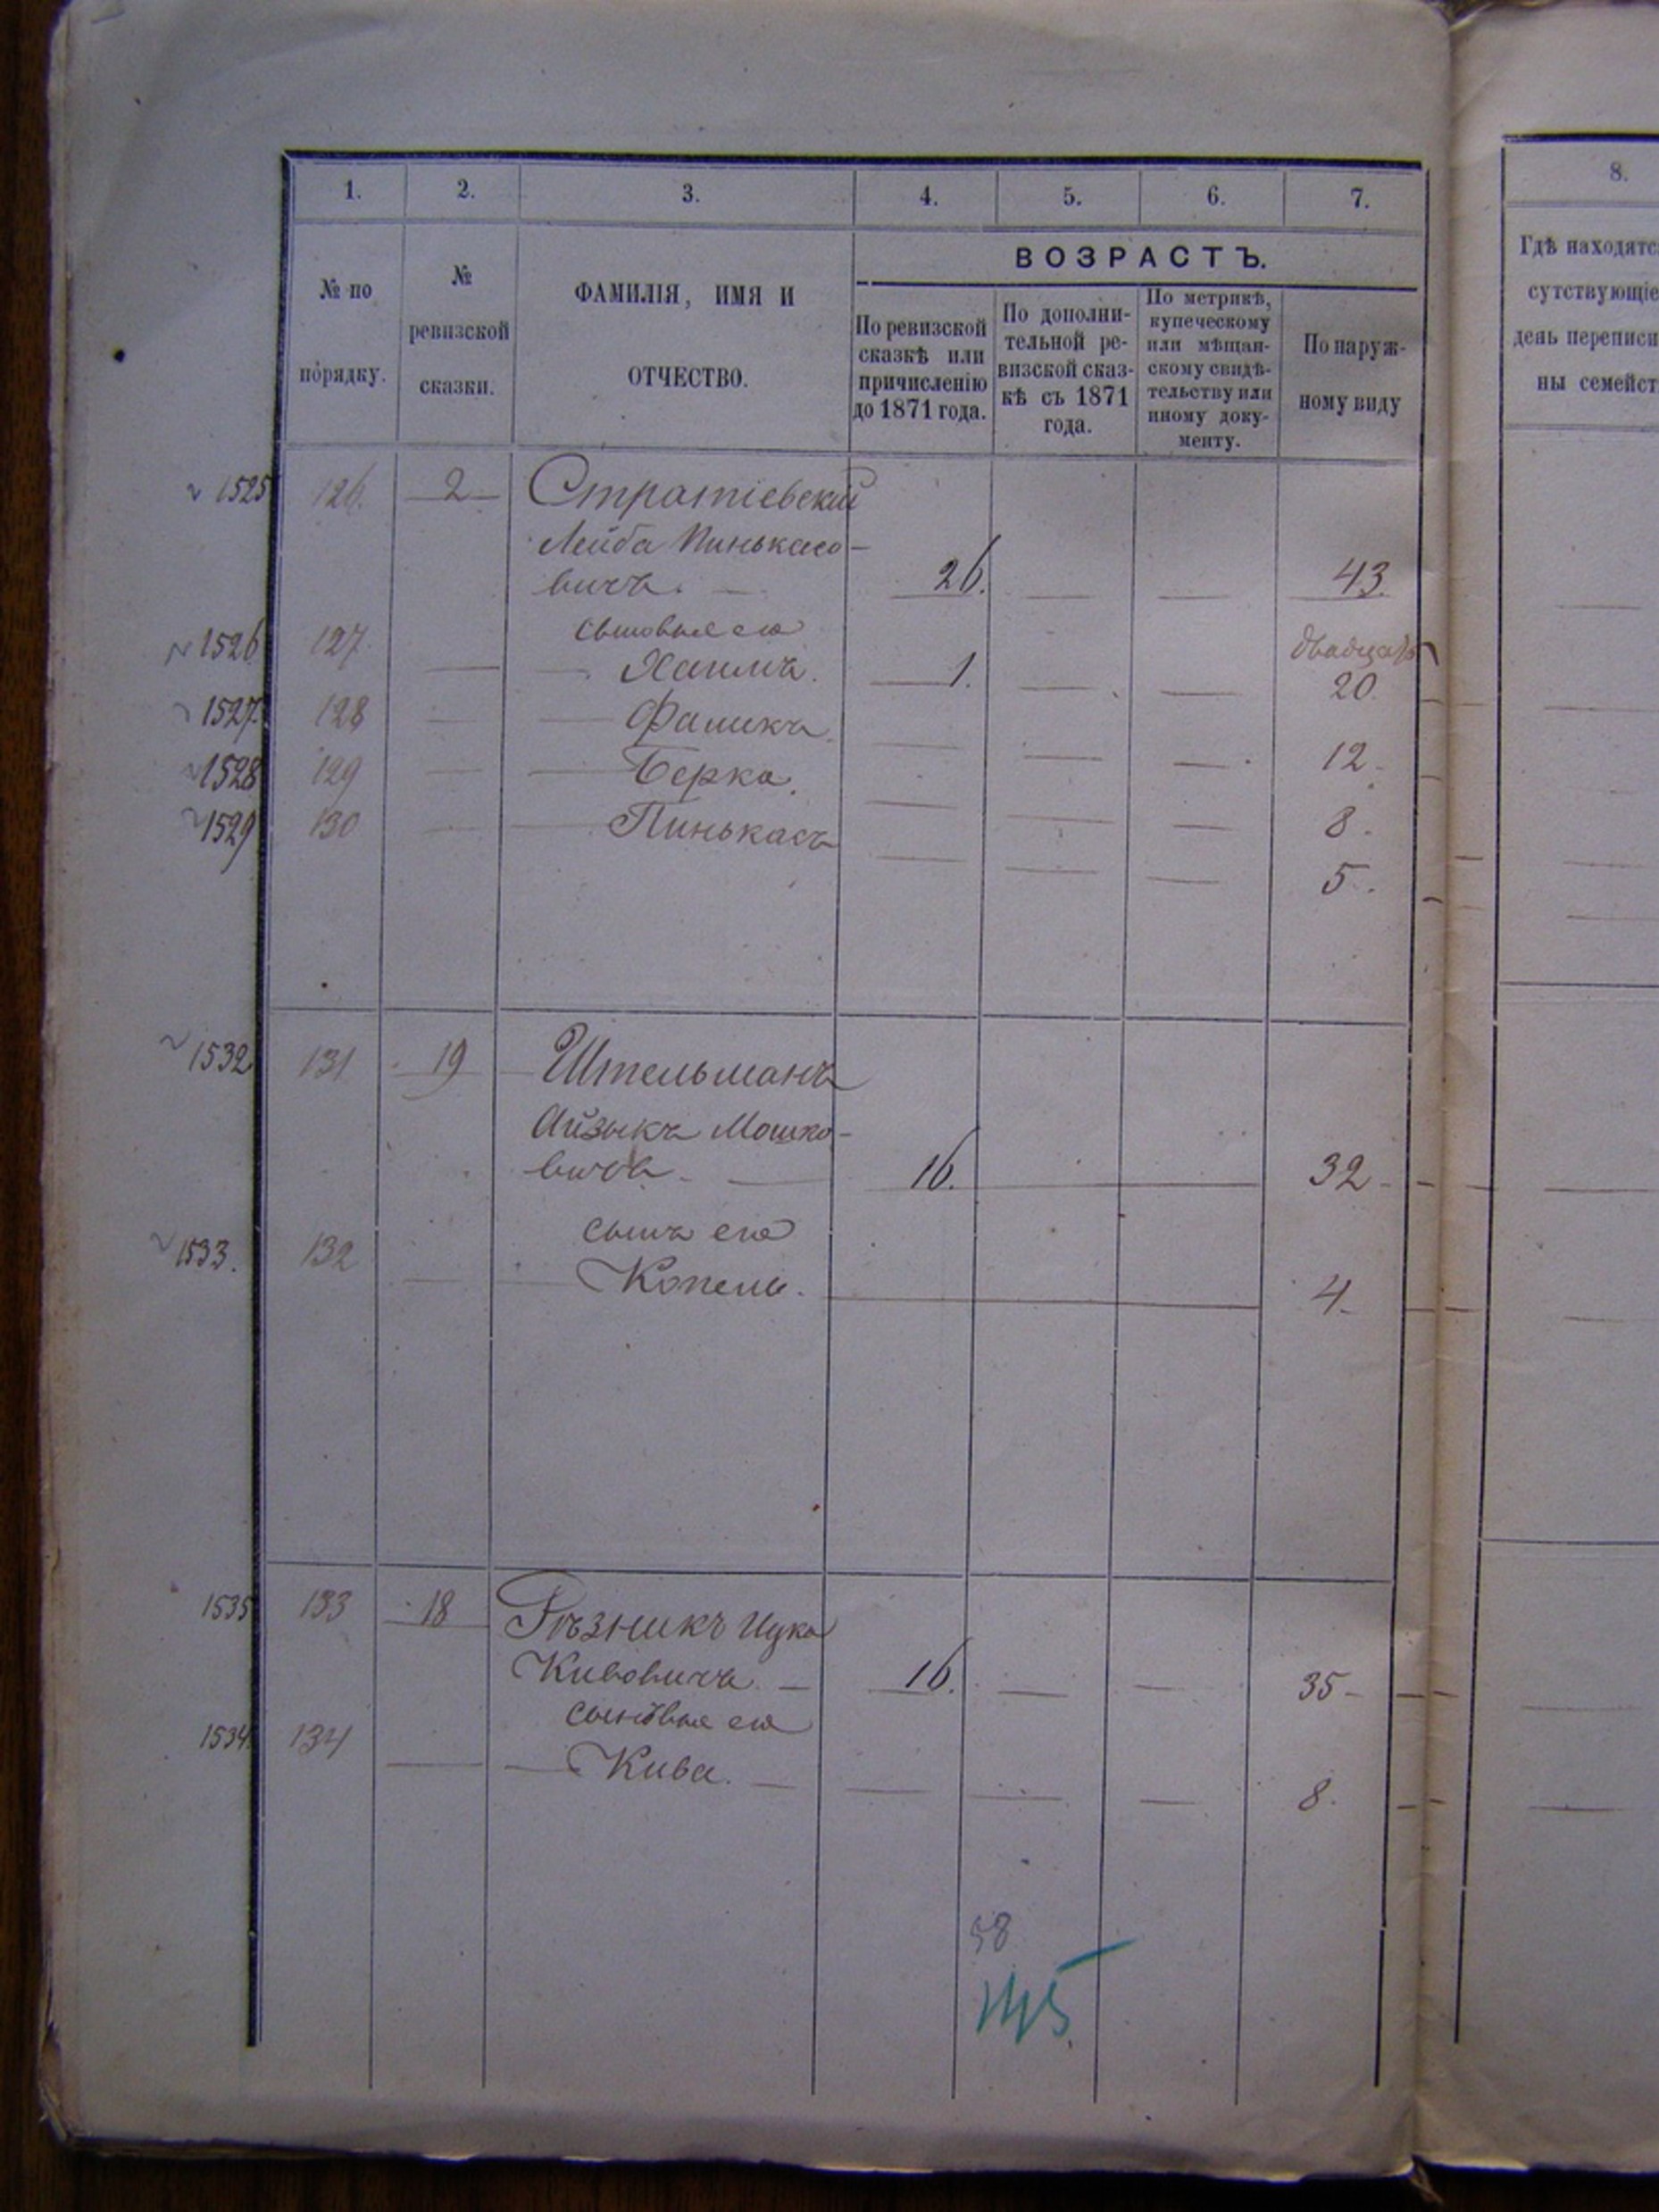 1. 2. 3. 4. 5. 6. 7.
8.
№ по порядку.
№ ревизской сказки.
ФАМИЛІЯ, ИМЯ И ОТЧЕСТВО.
ВОЗРАСТЪ.
По ревизской сказкѣ или причисленію до 1871 года.
По дополни-
тельной ре-
визской сказ-
кѣ съ 1871
года.
По метрикѣ,
купеческому
или мѣщан-
скому свидѣ-
тельству или
иному доку-
менту.
По наруж-
ному виду
Гдѣ находятс
сутствующіе
день переписи
ны семейст
1525 126. 2 Стратіевскій
Лейба Пинькасо-
вичъ. 26. 43.
сыновья его двадцать
1526 127. Хаимъ. 1. 20.
1527 128 Фаликъ. 12
1528 129 Берко. 8.
1529 130 Пинькасъ 5.
1532 131 19 Штельманъ
Айзыкъ Мошко-
вичъ. 16. 32
сынъ его
1533. 132 Копель. 4
1535 133 18 Рѣзникъ Ицко
Кивовичъ. 16. 35
сыновья его
1534 134 Кива. 8.
58